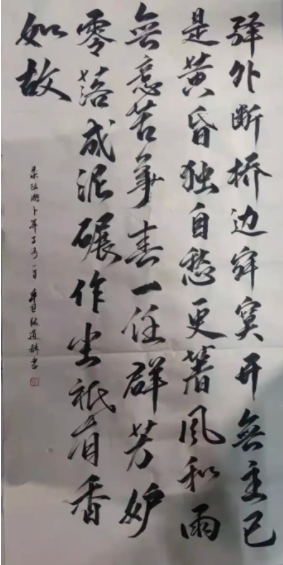 驿外断桥边寂寞开無主已
是黄昏独自愁更著风和雨
無意苦争春一任群芳妒
零落成泥碾作尘祇有香
如故
录陆游卜算子一首